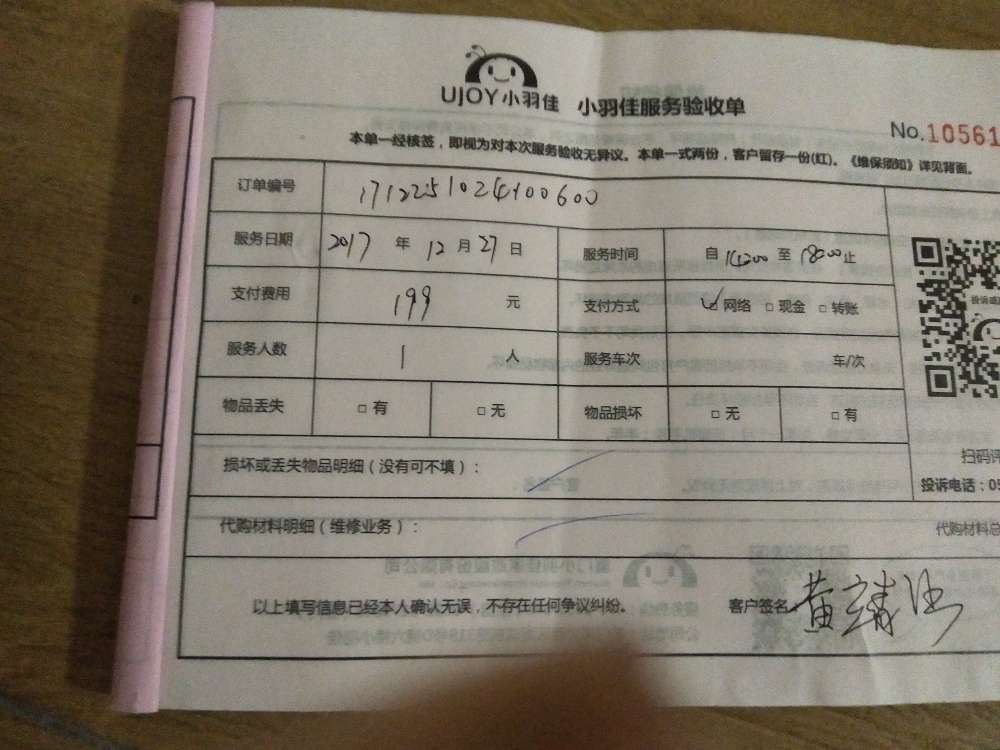 UJOY小羽佳 小羽佳服务验收单
No.10561
本单一经核签，即视为对本次服务验收无异议。本单一式两份，客户留存一份(红)。《维保须知》详见背面。
订单编号 1712251024100600
服务日期 2017 年 12 月 27 日 服务时间 自 至 18:00 止
支付费用 199 元 支付方式 ☑网络 □现金 □转账
服务人数 1 人 服务车次 车/次
物品丢失 □有 □无 物品损坏 □无 □有
损坏或丢失物品明细（没有可不填）：
扫码评
投诉电话：05
代购材料明细（维修业务）：
代购材料总
以上填写信息已经本人确认无误，不存在任何争议纠纷。 客户签名 黄靖